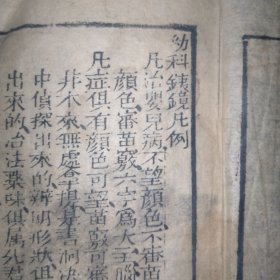 幼科鉄鏡凡例
凡治嬰兒病不望顏色不審苗
顏色審苗竅六字爲大主腦
凡症俱有顏色可望苗竅可審
非木來無處
中偵探出來的辨明形狀俱
出來的治法藥味俱屬